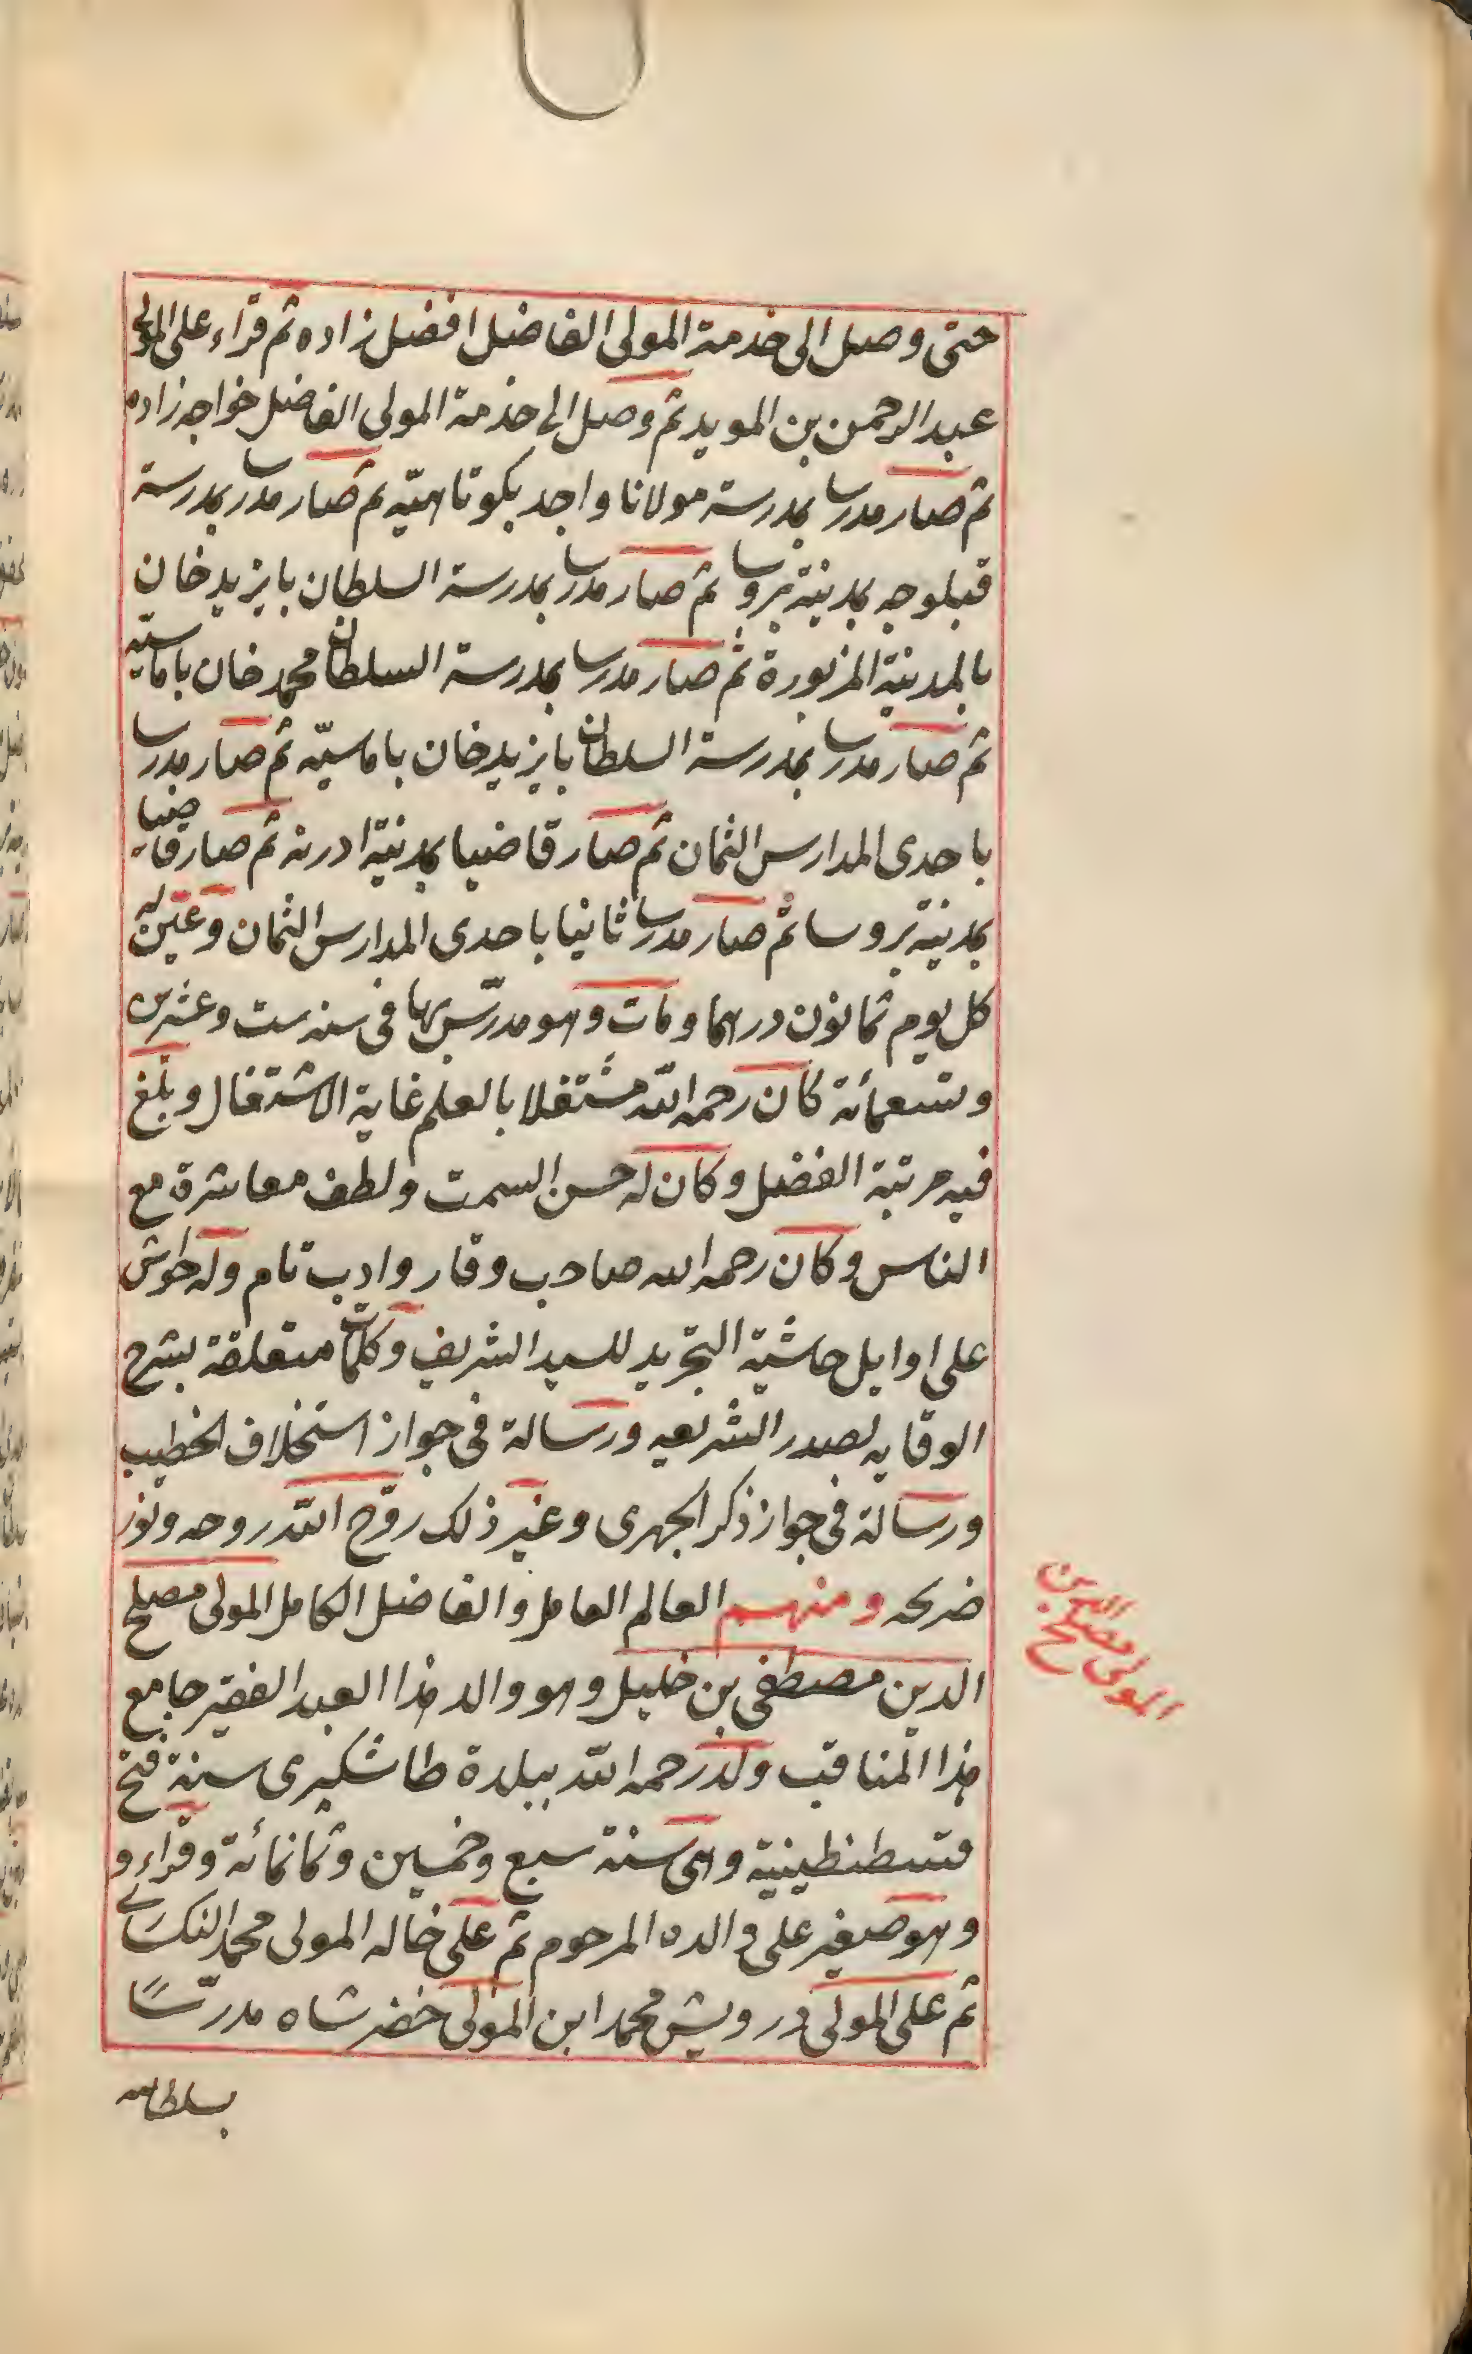 حتى وصل الى خدمة المولى الفاضل افضل زاده ثم قراء على المولى
عبد الرحمن بن المويد ثم وصل الى خذمة المولى الفاضل خواجه زاده
ثم صار مدرسا بمدرسة مولانا واجد بكوتاهيّه ثم صار مدرسا بمدرسة
قبلوجه بمدينة بروسا ثم صار مدرسا بمدرسة السلطان بايزيد خان
بالمدينة المزبورة ثم صار مدرسا بمدرسة السلطان محمد خان باماسيّه
ثم صار مدرسا بمدرسة السلطان بايزيد خان باماسيّه ثم صار مدرسا
باحدى المدارس الثمان ثم صار قاضيا بمدينة ادرنه ثم صار قاضيا
بمدينة بروسا ثم صار مدرسا ثانيا باحدى المدارس الثمان وعيّن له
كل يوم ثمانون درهما ومات وهو مدرّس بها فى سنه ست وعشرين
وتسعمائة كان رحمه الله مشتغلا بالعلم غاية الاشتغال وبلغ
فيه مرتبة الفضل وكان له حسن السمت ولطف معاشرة مع
الناس وكان رحمه الله صاحب وقار وادب تام وله حواش
على اوايل حاشية التجريد للسيد الشريف وكلمات متعلقة بشرح
الوقايه لصدر الشريعه ورسالة فى جواز استخلاف الخطيب
ورسالة فى جواز ذكر الجهرى وغير ذلك روّح الله روحه ونوّر
ضريحه ومنهم العالم العامل والفاضل الكامل المولى مصلح
الدين مصطفى بن خليل وهو والد هذا العبد الفقير جامع
هذا المناقب ولد رحمه الله ببلدة طاشكبرى سنة فتح
قسطنطينية وهى سنة سبع وخمسين وثمانمائة وقراء و
وهو صغير على والده المرحوم ثم على خاله المولى محمد النكسارى
ثم على المولى درويش محمد ابن المولى خضر شاه مدرّسًا
بسلطانيه
المولى مصلح الدين